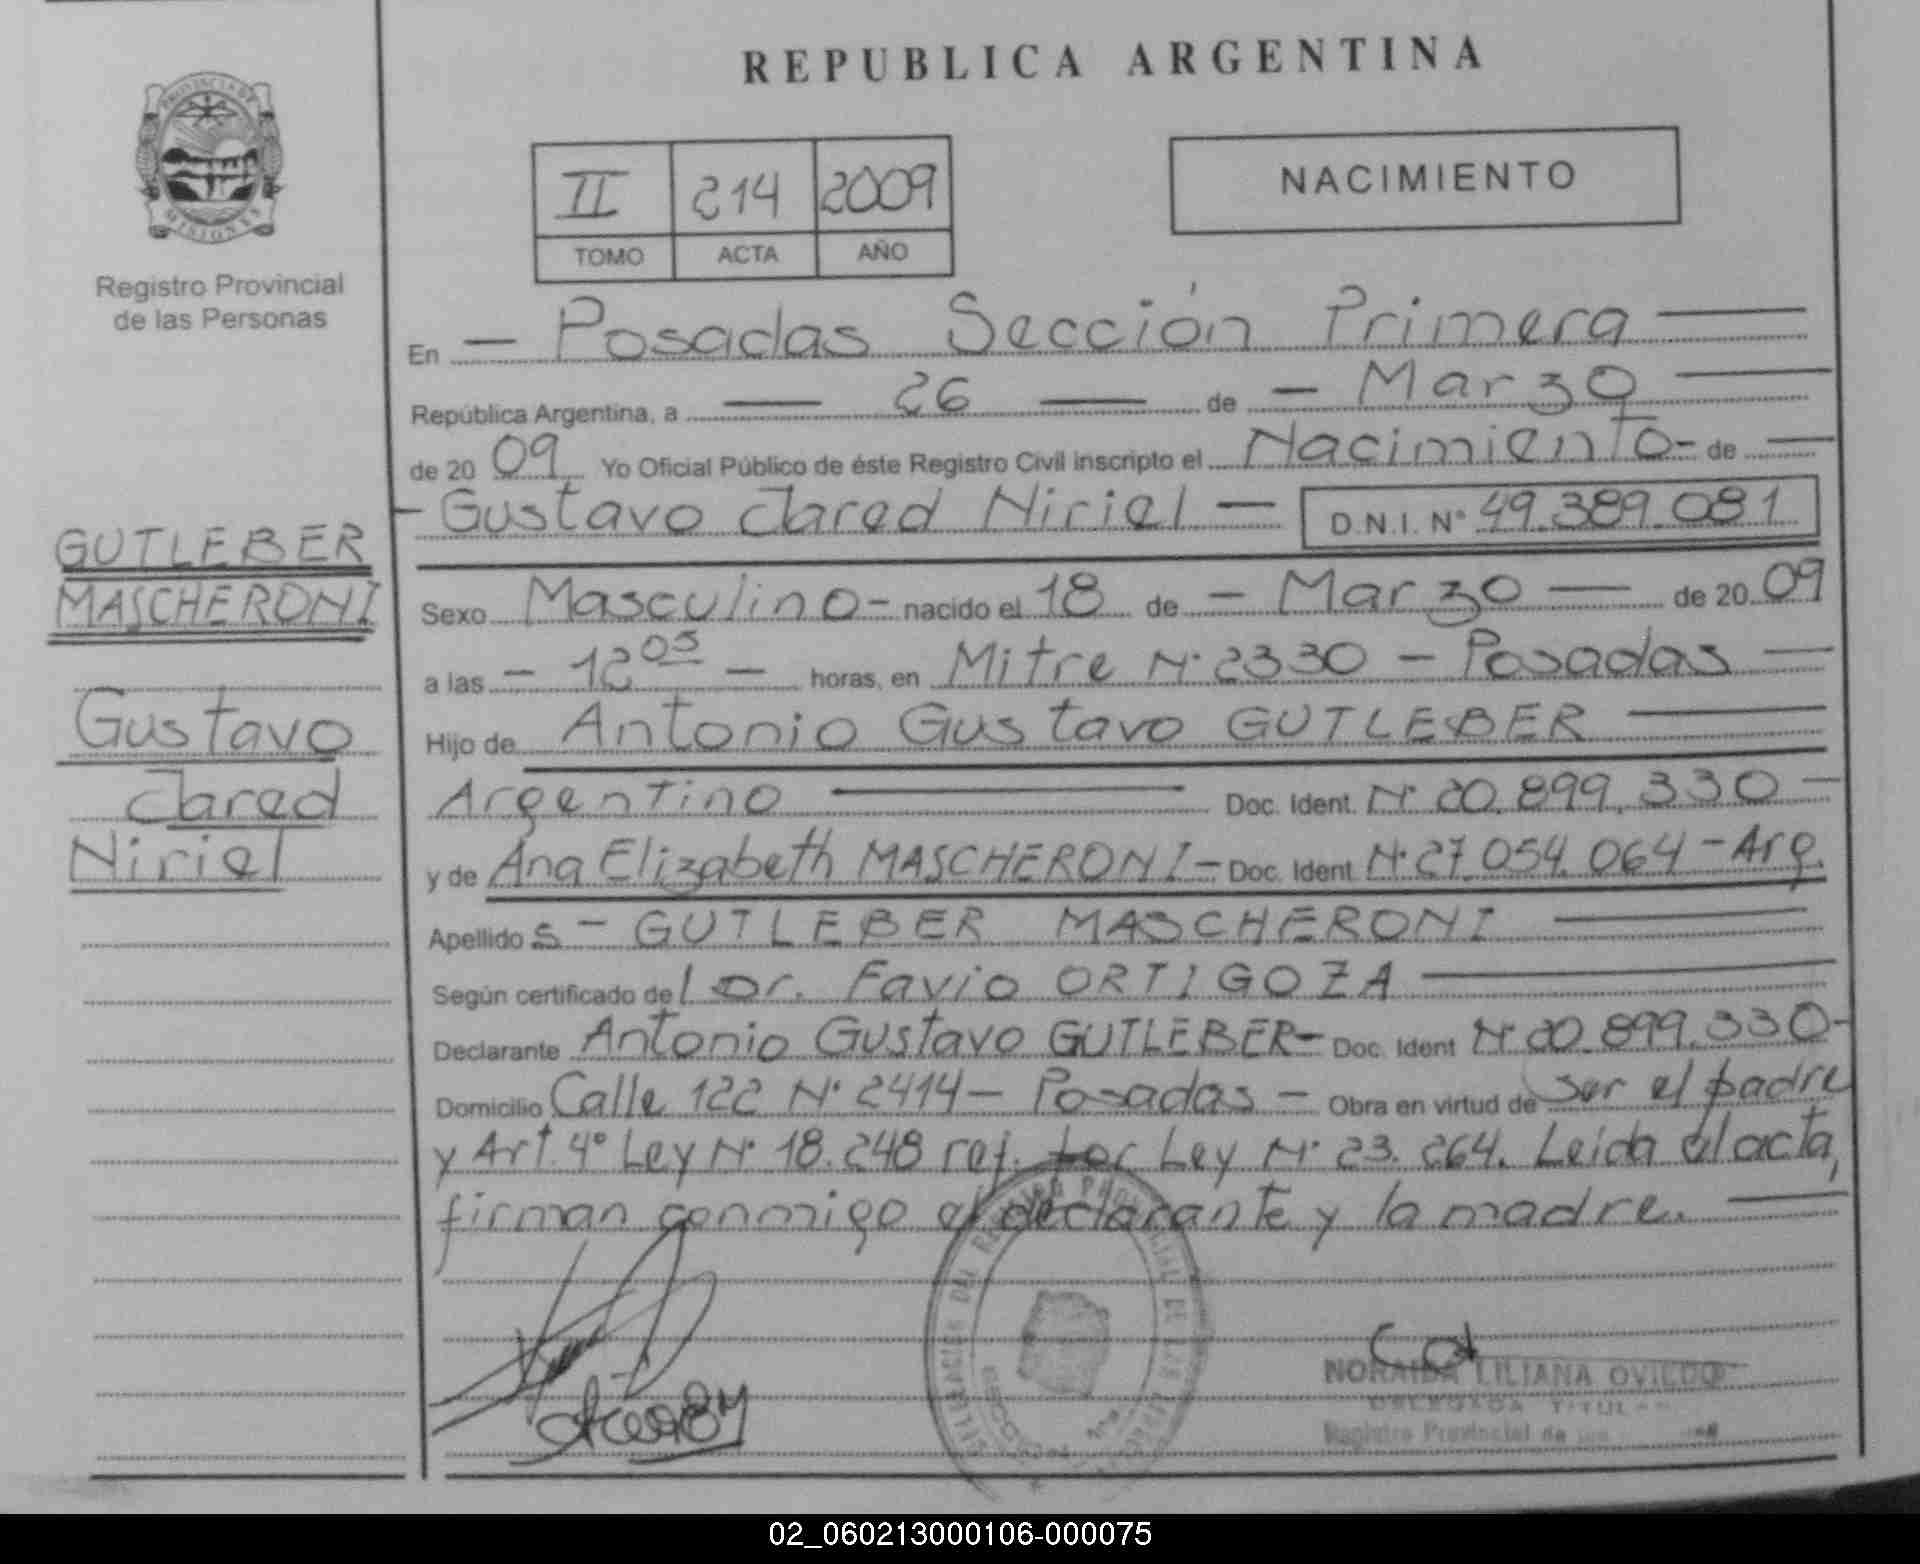 REPUBLICA ARGENTINA
PROVINCIA DE
MISIONES
Registro Provincial
de las Personas
II 214 2009
TOMO ACTA AÑO
NACIMIENTO
GUTLEBER
MASCHERONI
Gustavo
Jared
Niriel
En - Posadas Sección Primera
República Argentina, a 26 de - Marzo
de 2009 Yo Oficial Público de éste Registro Civil inscripto el Nacimiento - de
- Gustavo Jared Niriel - D.N.I. N° 49.389.081
Sexo Masculino - nacido el 18 de - Marzo de 2009
a las - 12 05 - horas, en Mitre N° 2330 - Posadas
Hijo de Antonio Gustavo GUTLEBER
Argentino Doc. Ident. N° 20.899.330 -
y de Ana Elizabeth MASCHERONI - Doc. Ident. N° 27.054.064 - Arg.
Apellidos - GUTLEBER MASCHERONI
Según certificado del Dr. Favio ORTIGOZA
Declarante Antonio Gustavo GUTLEBER - Doc. Ident N° 20.899.330 -
Domicilio Calle 122 N° 2414 - Posadas - Obra en virtud de ser el padre
y Art. 4° Ley N° 18.248 ref. por Ley N° 23.264. Leida el acta,
firman conmigo el declarante y la madre.
NORAIDA LILIANA OVIEDO
DELEGADA TITULAR
Registro Provincial de
02_060213000106-000075